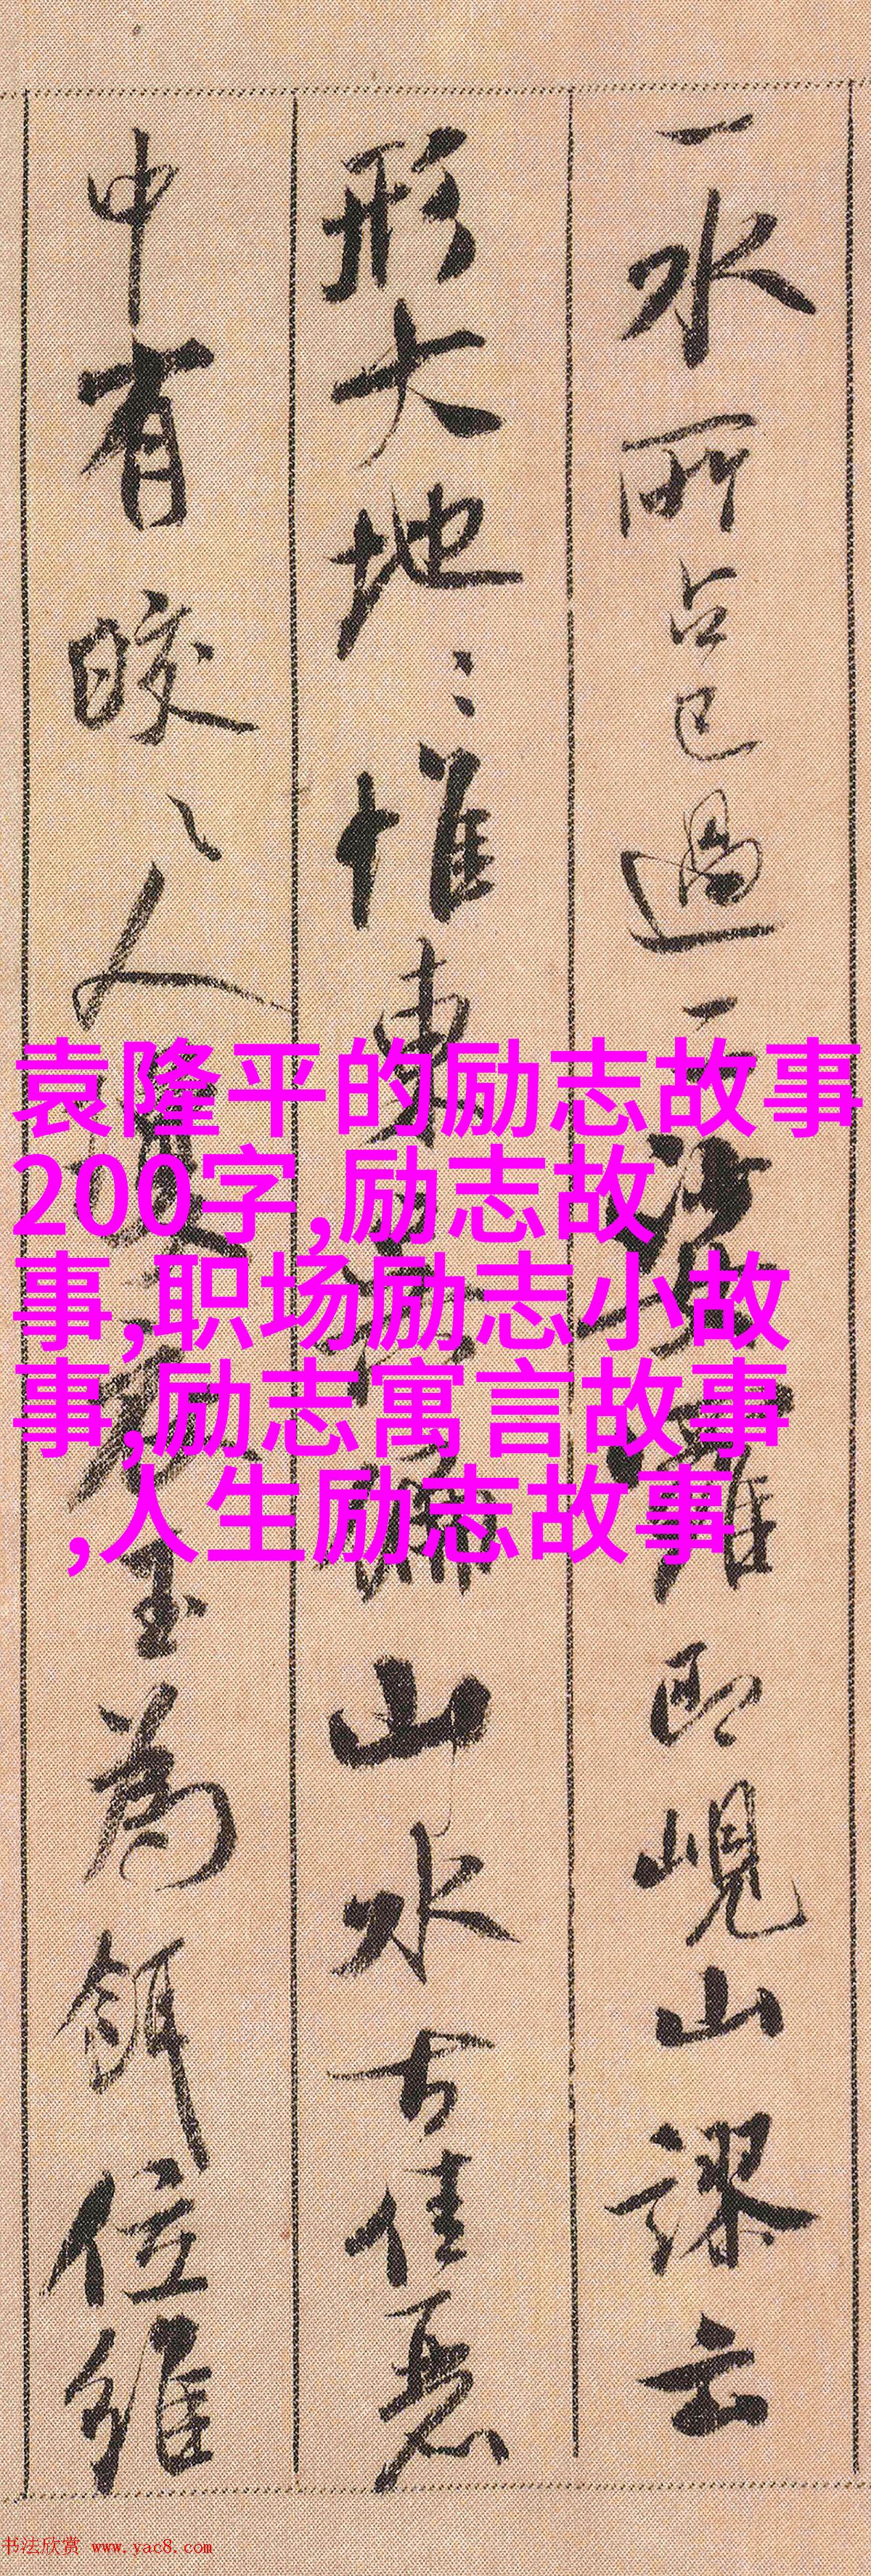 一水所占已過二
即峴山謬云
形大地〻惟東
山水古佳惡
中有皎〻人
玉為餌位維
袁隆平的励志故事
200字,励志故
事,职场励志小故
事,励志寓言故事
,人生励志故事
书法欣赏 www.yac8.com